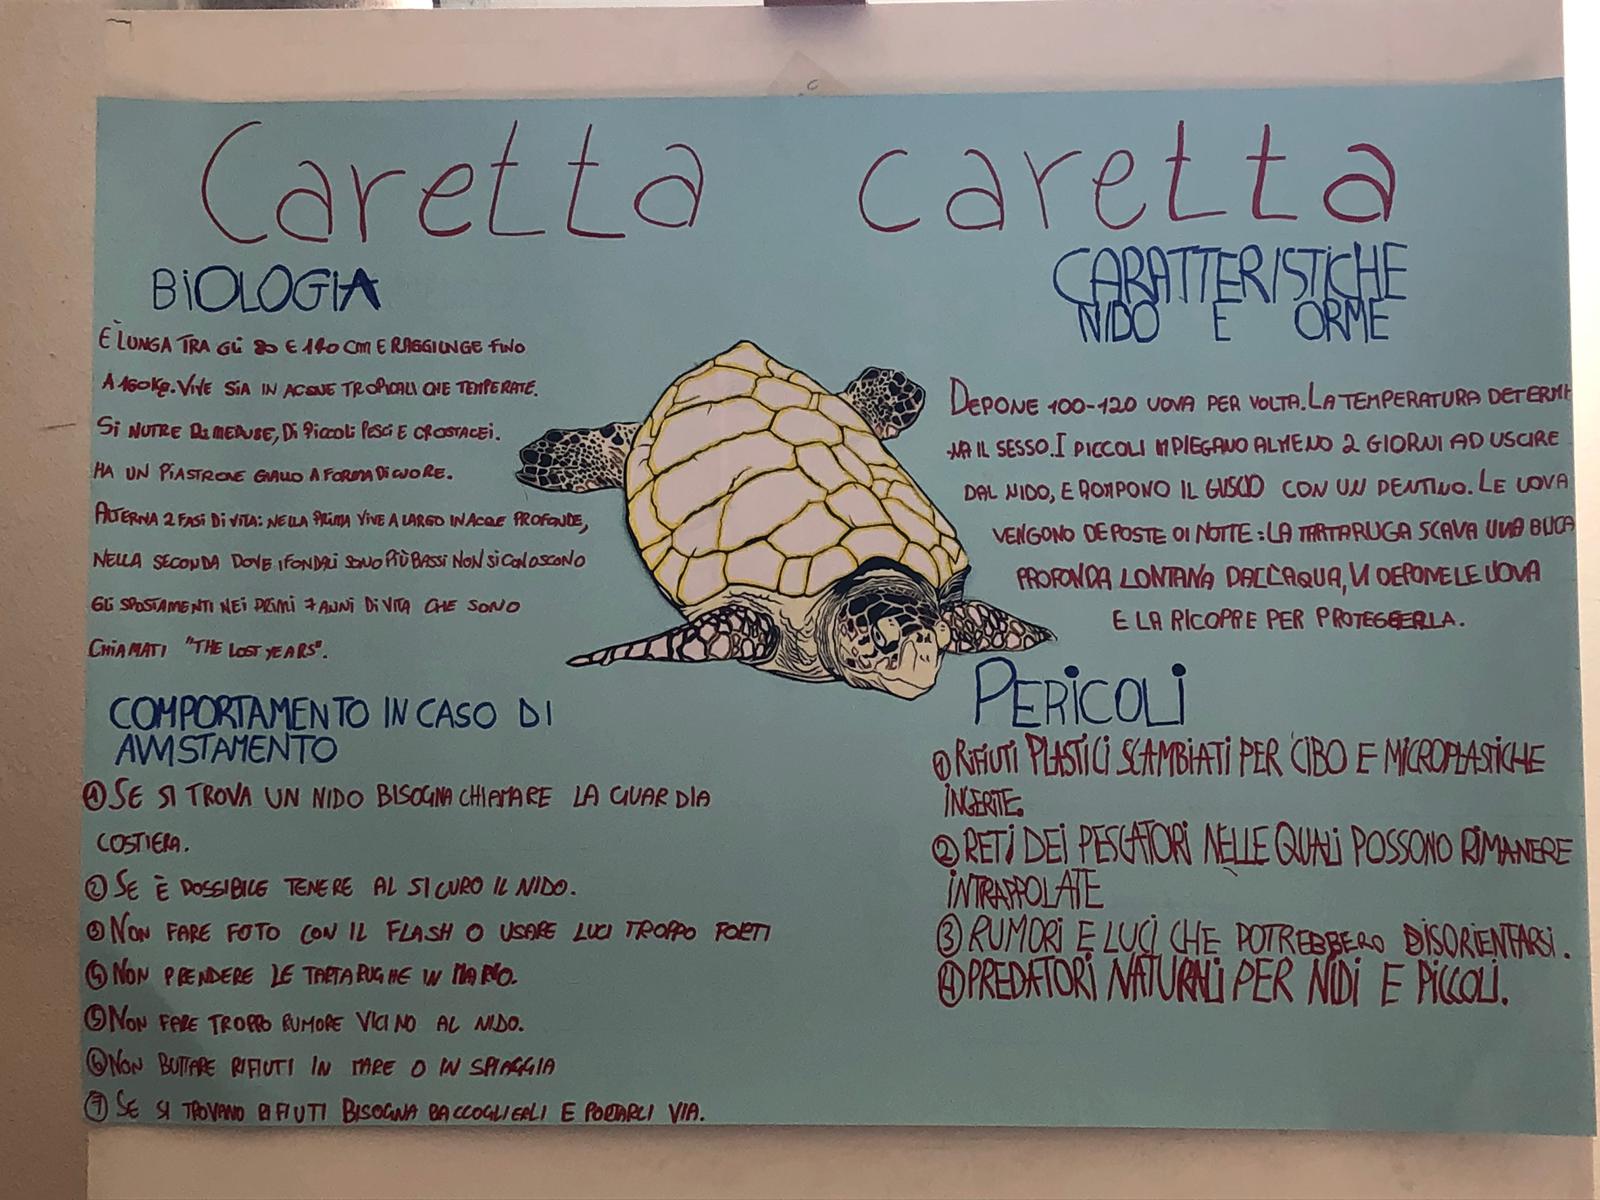 Caretta caretta
BIOLOGIA
È LUNGA TRA GLI 80 E 140 CM E RAGGIUNGE FINO
A 160 Kg. VIVE SIA IN ACQUE TROPICALI CHE TEMPERATE.
SI NUTRE DI MEDUSE, DI PICCOLI PESCI E CROSTACEI.
HA UN PIASTRONE GIALLO A FORMA DI CUORE.
ALTERNA 2 FASI DI VITA: NELLA PRIMA VIVE A LARGO IN ACQUE PROFONDE,
NELLA SECONDA DOVE I FONDALI SONO PIÙ BASSI NON SI CONOSCONO
GLI SPOSTAMENTI NEI PRIMI 7 ANNI DI VITA CHE SONO
CHIAMATI "THE LOST YEARS".
COMPORTAMENTO IN CASO DI
AVVISTAMENTO
① SE SI TROVA UN NIDO BISOGNA CHIAMARE LA GUARDIA
COSTIERA.
② SE È POSSIBILE TENERE AL SICURO IL NIDO.
③ NON FARE FOTO CON IL FLASH O USARE LUCI TROPPO FORTI
④ NON PRENDERE LE TARTARUGHE IN MANO.
⑤ NON FARE TROPPO RUMORE VICINO AL NIDO.
⑥ NON BUTTARE RIFIUTI IN MARE O IN SPIAGGIA
⑦ SE SI TROVANO RIFIUTI BISOGNA RACCOGLIERLI E PORTARLI VIA.
CARATTERISTICHE
NIDO E ORME
DEPONE 100-120 UOVA PER VOLTA. LA TEMPERATURA DETERMI-
-NA IL SESSO. I PICCOLI IMPIEGANO ALMENO 2 GIORNI AD USCIRE
DAL NIDO, E ROMPONO IL GUSCIO CON UN DENTINO. LE UOVA
VENGONO DEPOSTE DI NOTTE: LA TARTARUGA SCAVA UNA BUCA
PROFONDA LONTANA DALL'ACQUA, VI DEPONE LE UOVA
E LA RICOPRE PER PROTEGGERLA.
PERICOLI
① RIFIUTI PLASTICI SCAMBIATI PER CIBO E MICROPLASTICHE
INGERITE.
② RETI DEI PESCATORI NELLE QUALI POSSONO RIMANERE
INTRAPPOLATE
③ RUMORI E LUCI CHE POTREBBERO DISORIENTARSI.
④ PREDATORI NATURALI PER NIDI E PICCOLI.